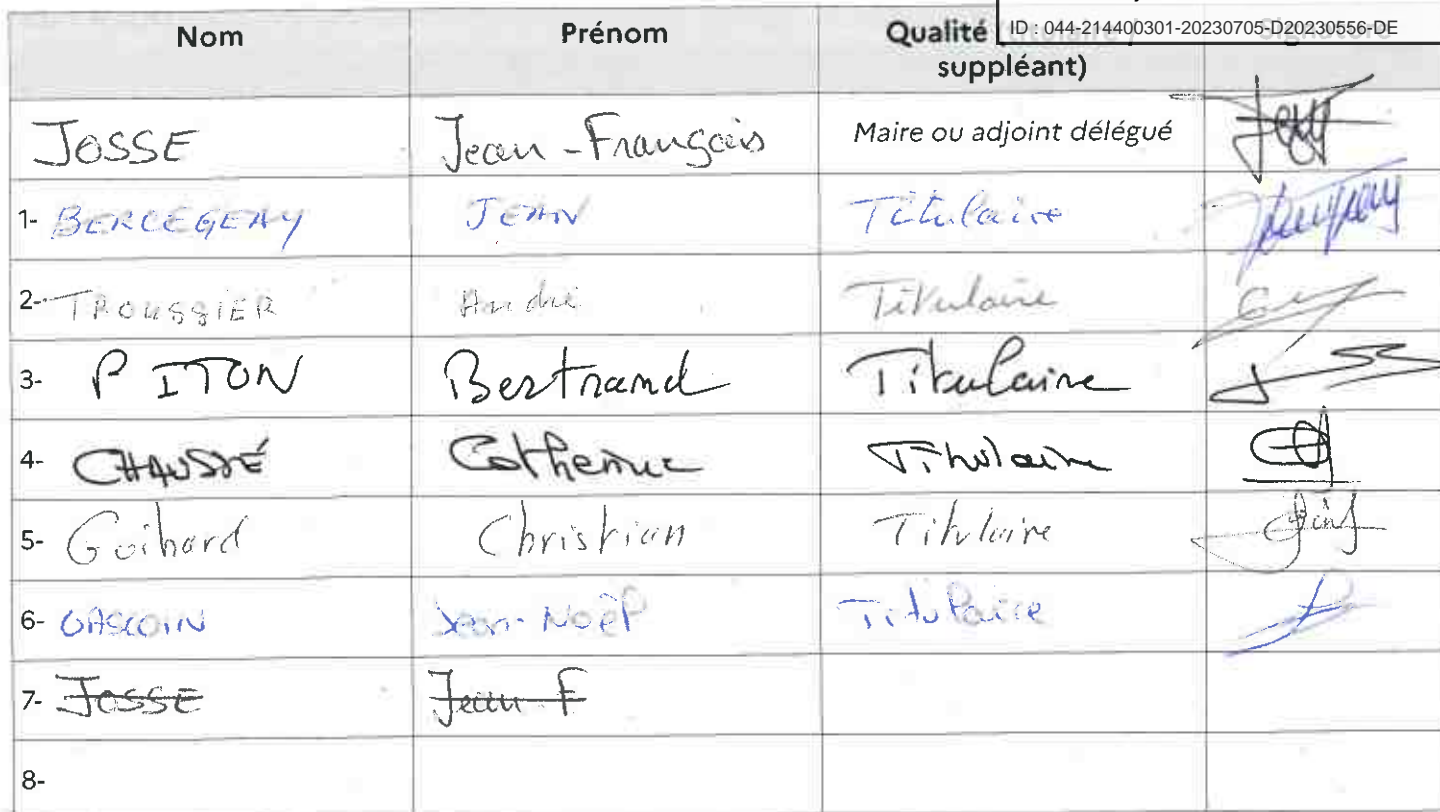 ID : 044-214400301-20230705-D20230556-DE
Nom Prénom Qualité
suppléant)
JOSSE Jean-François Maire ou adjoint délégué
1- BERCEGEAY JEAN Titulaire
2- TROUSSIER André Titulaire
3- PITON Bertrand Titulaire
4- CHAUSSÉ Catherine Titulaire
5- Guihard Christian Titulaire
6- GASCOIN Jean-Noël Titulaire
7- JOSSE Jean F
8-